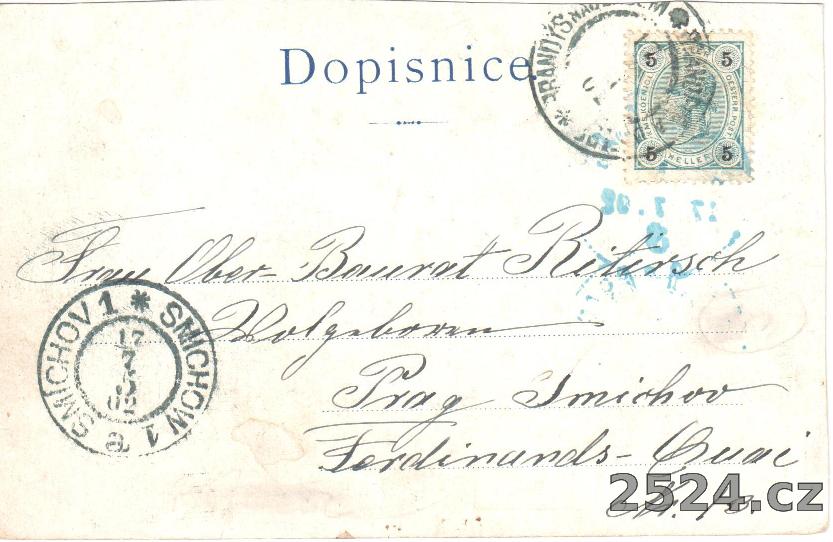 Dopisnice
BRANDÝS NAD LABEM
5 5
KAIS. KOENIGL. OESTERR. POST
5 HELLER 5
17 7 02
8
Frau Ober-Baurat Ritirsch
Wolgeboren
Prag Smichov
Ferdinands-Quai
SMÍCHOV 1 * SMICHOW 1
17
7
a
2524.cz